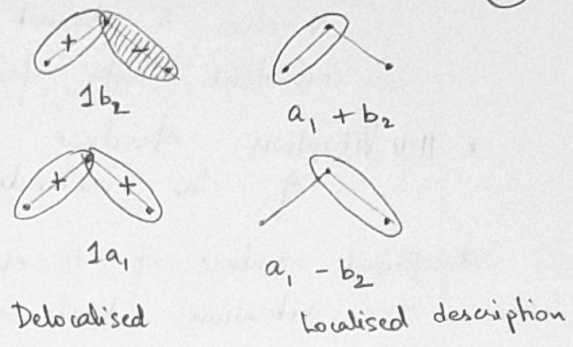 + -
1b₂ a₁ + b₂
+ +
1a₁ a₁ - b₂
Delocalised Localised description